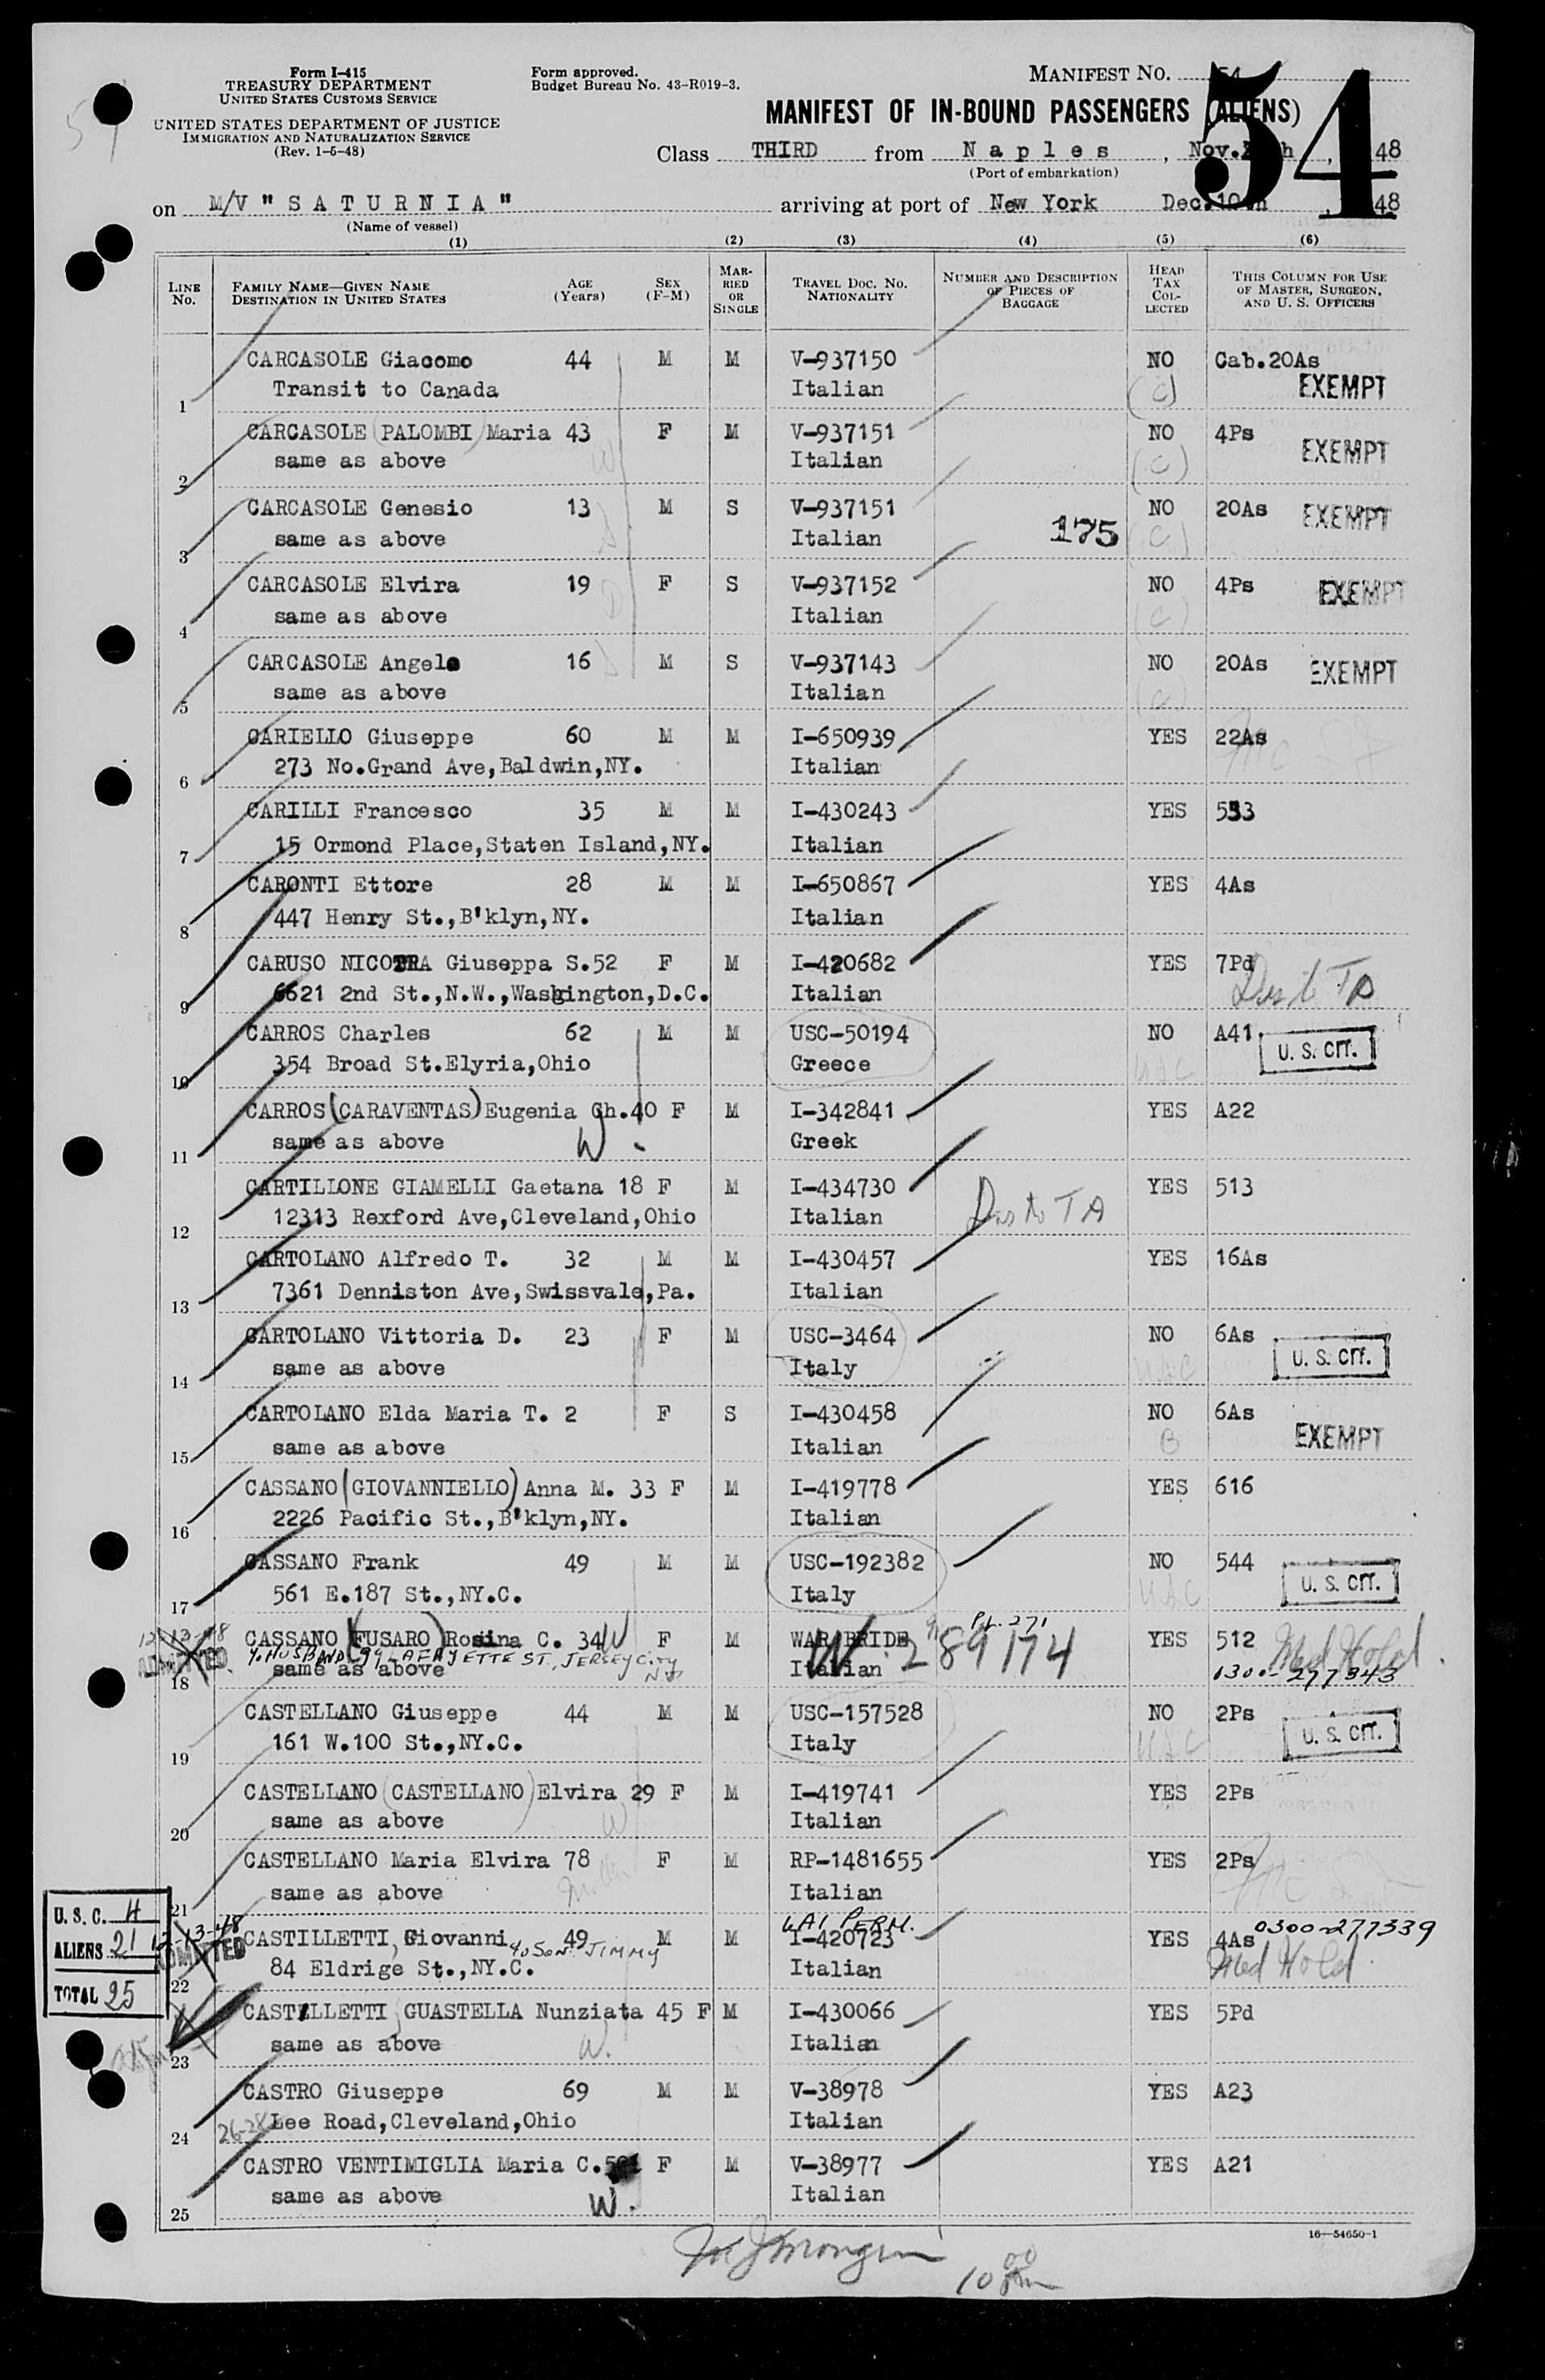 Form I-415
TREASURY DEPARTMENT
UNITED STATES CUSTOMS SERVICE
UNITED STATES DEPARTMENT OF JUSTICE
IMMIGRATION AND NATURALIZATION SERVICE
(Rev. 1-5-48)
Form approved.
Budget Bureau No. 43-R019-3.
MANIFEST NO. 54
54
MANIFEST OF IN-BOUND PASSENGERS (ALIENS)
Class THIRD from Naples, Nov. 48
(Port of embarkation)
on M/V "SATURNIA" arriving at port of New York Dec. 10th, 48
(Name of vessel)
(1) (2) (3) (4) (5) (6)
LINE No. FAMILY NAME—GIVEN NAME DESTINATION IN UNITED STATES AGE (Years) SEX (F-M) MARRIED OR SINGLE TRAVEL DOC. NO. NATIONALITY NUMBER AND DESCRIPTION OF PIECES OF BAGGAGE HEAD TAX COLLECTED THIS COLUMN FOR USE OF MASTER, SURGEON, AND U. S. OFFICERS
CARCASOLE Giacomo 44 M M V-937150 NO Cab.20As
1 Transit to Canada Italian (C) EXEMPT
CARCASOLE (PALOMBI) Maria 43 F M V-937151 NO 4Ps
2 same as above W Italian (C) EXEMPT
CARCASOLE Genesio 13 M S V-937151 NO 20As EXEMPT
3 same as above Italian 175 (C)
CARCASOLE Elvira 19 F S V-937152 NO 4Ps EXEMPT
4 same as above D Italian (C)
CARCASOLE Angelo 16 M S V-937143 NO 20As EXEMPT
5 same as above Italian (C)
CARIELLO Giuseppe 60 M M I-650939 YES 22As
6 273 No.Grand Ave,Baldwin,NY. Italian
CARILLI Francesco 35 M M I-430243 YES 553
7 15 Ormond Place,Staten Island,NY. Italian
CARONTI Ettore 28 M M I-650867 YES 4As
8 447 Henry St.,B'klyn,NY. Italian
CARUSO NICOTRA Giuseppa S.52 F M I-420682 YES 7Pd
9 6621 2nd St.,N.W.,Washington,D.C. Italian Dis to TA
CARROS Charles 62 M M USC-50194 NO A41 U. S. CIT.
10 354 Broad St.Elyria,Ohio Greece USC
CARROS (CARAVENTAS) Eugenia Gh.40 F M I-342841 YES A22
11 same as above W. Greek
CARTILLONE GIAMELLI Gaetana 18 F M I-434730 YES 513
12 12313 Rexford Ave,Cleveland,Ohio Italian Dis to TA
CARTOLANO Alfredo T. 32 M M I-430457 YES 16As
13 7361 Denniston Ave,Swissvale,Pa. Italian
CARTOLANO Vittoria D. 23 F M USC-3464 NO 6As U. S. CIT.
14 same as above Italy USC
CARTOLANO Elda Maria T. 2 F S I-430458 NO 6As
15 same as above Italian B EXEMPT
CASSANO (GIOVANNIELLO) Anna M. 33 F M I-419778 YES 616
16 2226 Pacific St.,B'klyn,NY. Italian
CASSANO Frank 49 M M USC-192382 NO 544 U. S. CIT.
17 561 E.187 St.,NY.C. Italy USC
CASSANO (FUSARO) Rosina C. 34 W F M WAR BRIDE P.L. 271 YES 512 Med Hold
ADMITTED HUSBAND 99 LAFAYETTE ST, JERSEY CITY NJ
18 same as above Italian W 289174 1300-277343
CASTELLANO Giuseppe 44 M M USC-157528 NO 2Ps U. S. CIT.
19 161 W.100 St.,NY.C. Italy USC
CASTELLANO (CASTELLANO) Elvira 29 F M I-419741 YES 2Ps
20 same as above W Italian
CASTELLANO Maria Elvira 78 F M RP-1481655 YES 2Ps
21 same as above Italian
U. S. C. 4
ALIENS 21
TOTAL 25
12-13-48 ADMITTED
CASTILLETTI, Giovanni 49 M M I-420723 YES 4As 0300-277339
c/o SON JIMMY
22 84 Eldrige St.,NY.C. Italian Med Hold
CASTILLETTI GUASTELLA Nunziata 45 F M I-430066 YES 5Pd
23 same as above W. Italian
CASTRO Giuseppe 69 M M V-38978 YES A23
24 Lee Road,Cleveland,Ohio Italian
CASTRO VENTIMIGLIA Maria C. F M V-38977 YES A21
25 same as above W. Italian
16—54650-1